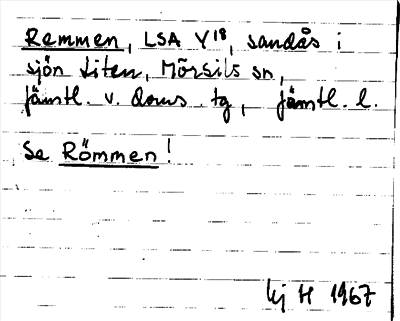 Remmen, LSA Y18, sandås i
sjön Liten, Mörsils sn,
Jämtl. v. doms. tg, Jämtl. l.
Se Römmen!
kj H 1967